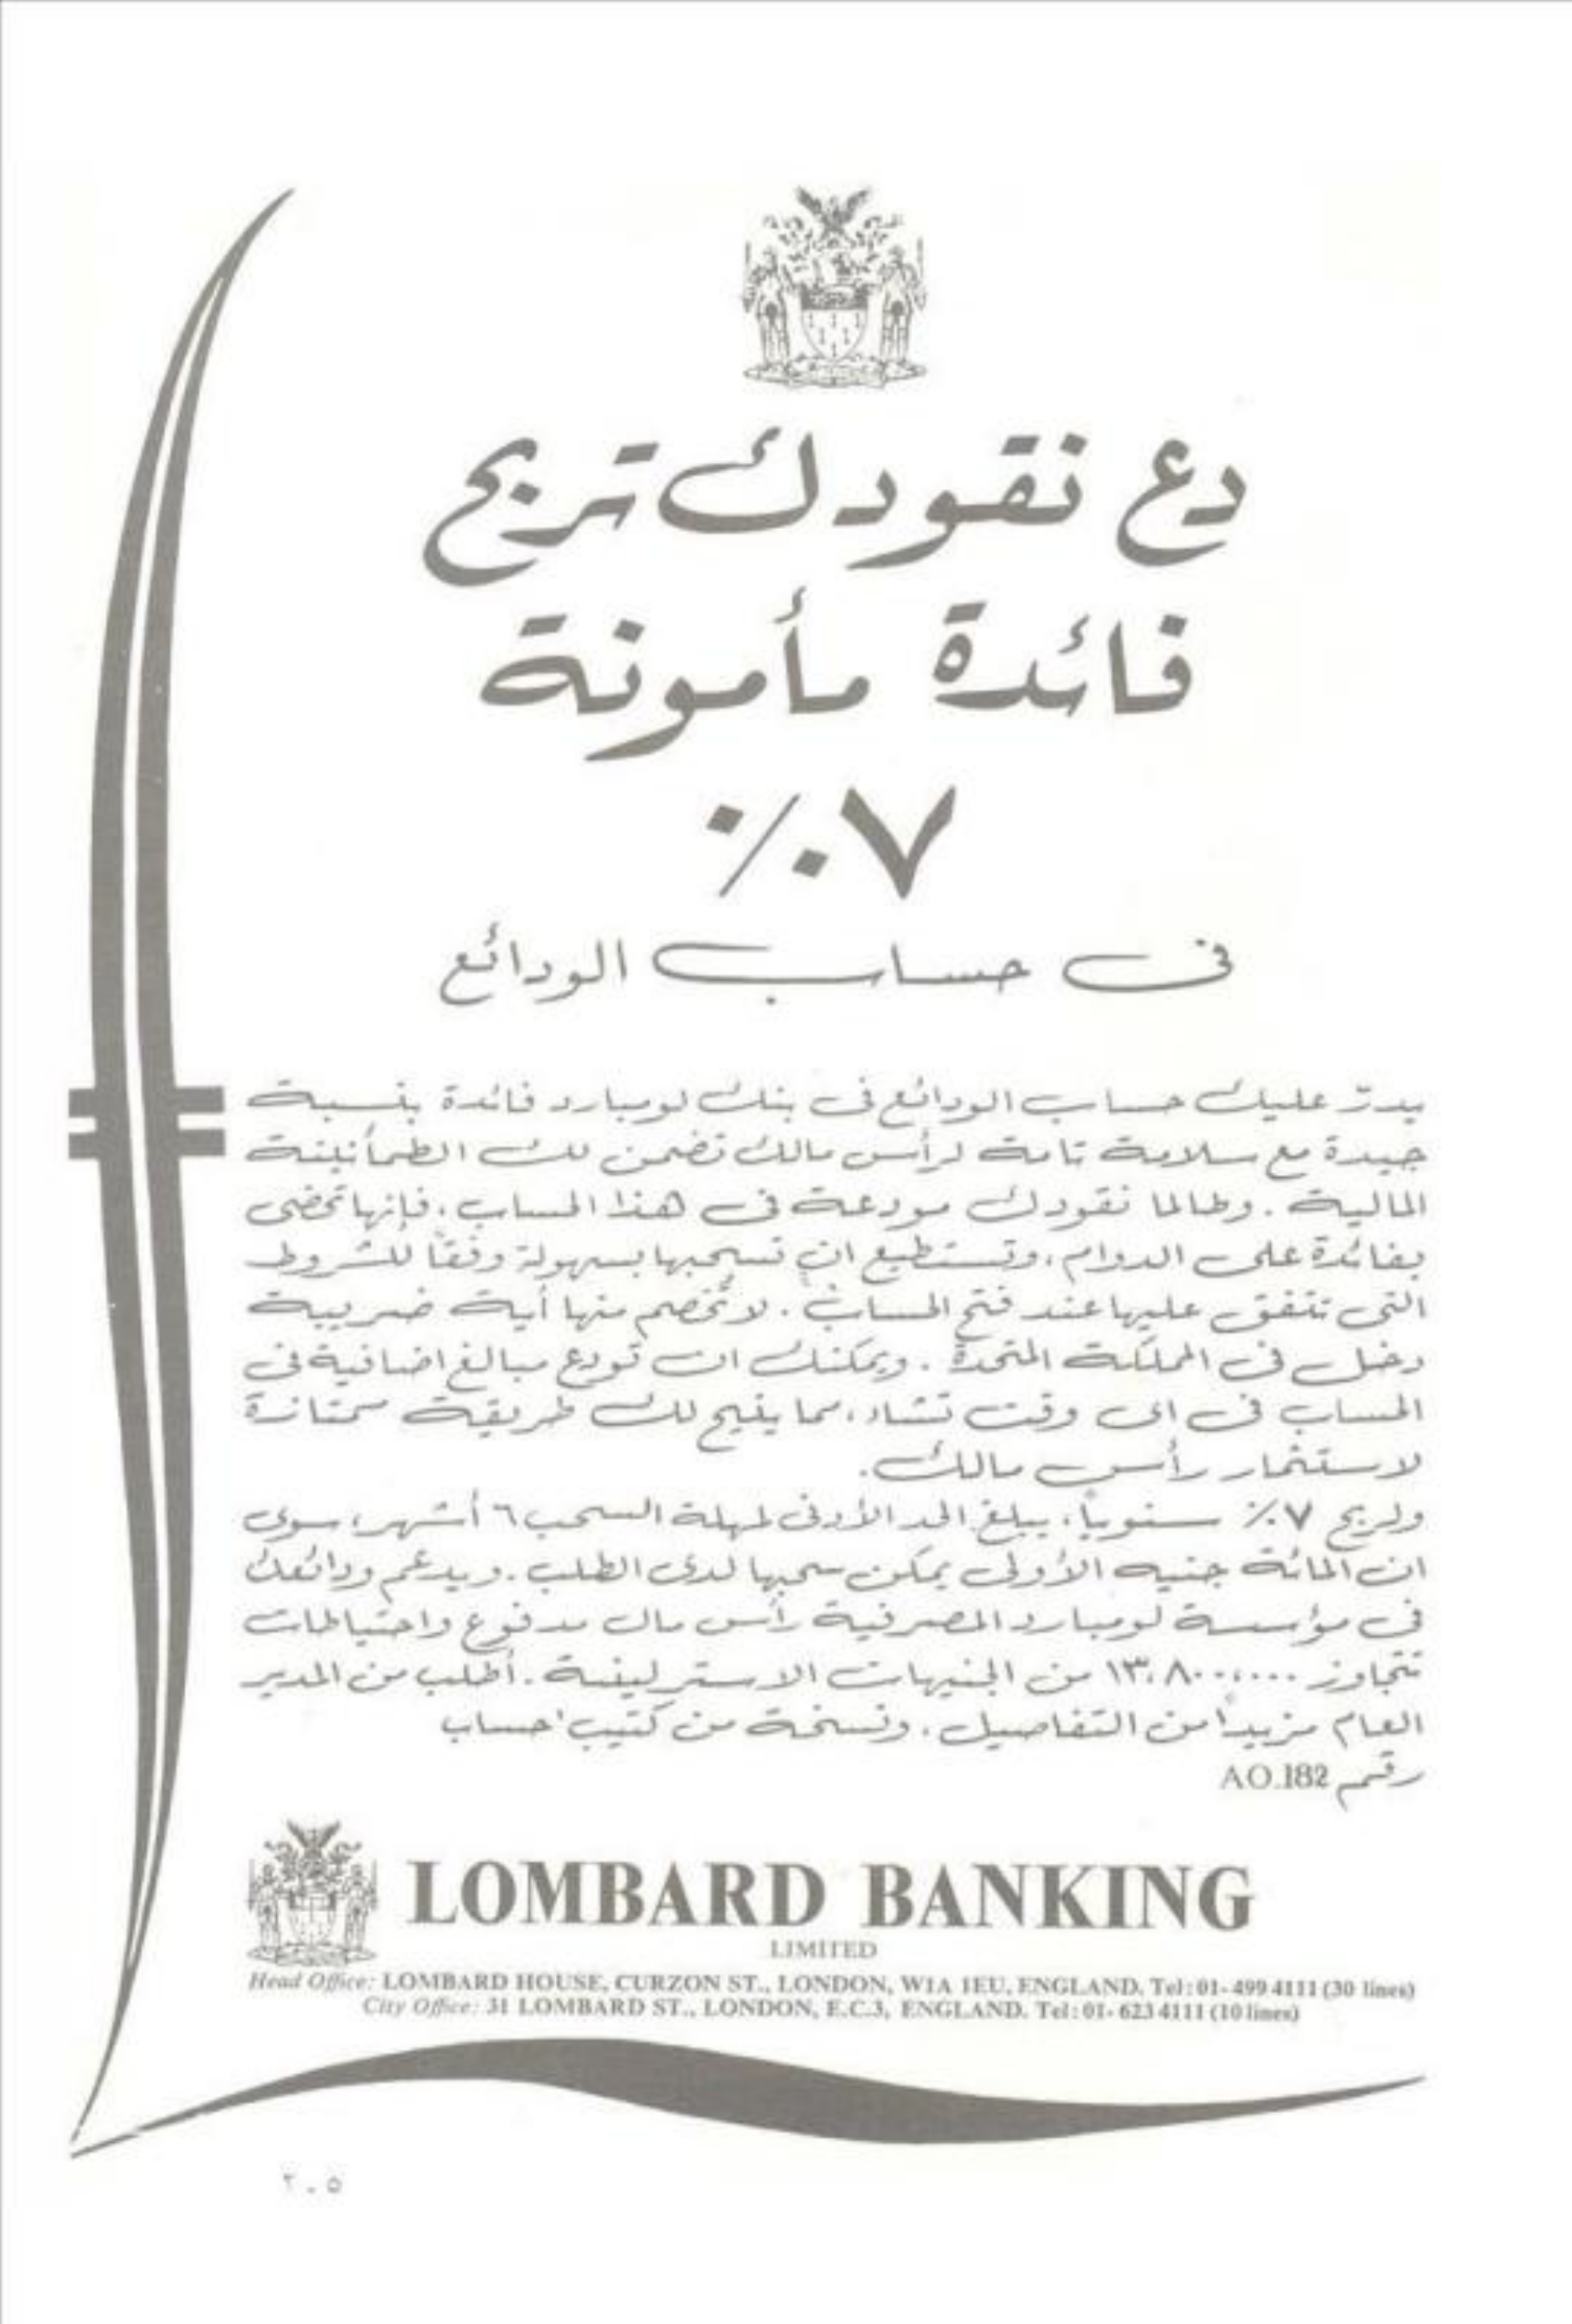 دع نقودك تربح
فائدة مأمونة
٧٪
فى حساب الودائع
يدرّ عليك حساب الودائع فى بنك لومبارد فائدة بنسبة
جيدة مع سلامة تامة لرأس مالك تضمن لك الطمأنينة
المالية . وطالما نقودك مودعة فى هذا الحساب ، فإنها تحضى
بفائدة على الدوام ، وتستطيع ان تسحبها بسهولة وفقاً للشروط
التى تتفق عليها عند فتح الحساب . لا تُخصم منها أية ضريبة
دخل فى المملكة المتحدة . ويمكنك ان تودع مبالغ اضافية فى
الحساب فى اى وقت تشاء ، مما يتيح لك طريقة ممتازة
لاستثمار رأس مالك .
ولربح ٧٪ سنوياً ، يبلغ الحد الأدنى لمهلة السحب ٦ أشهر ، سوى
ان المائة جنيه الأولى يمكن سحبها لدى الطلب . ويدعم ودائعك
فى مؤسسة لومبارد المصرفية رأس مال مدفوع واحتياطات
تتجاوز ١٣،٨٠٠،٠٠٠ من الجنيهات الاسترلينية . أطلب من المدير
العام مزيداً من التفاصيل ، ونسخة من كتيب حساب
رقم AO.182
LOMBARD BANKING
LIMITED
Head Office: LOMBARD HOUSE, CURZON ST., LONDON, W1A 1EU, ENGLAND. Tel: 01-499 4111 (30 lines)
City Office: 31 LOMBARD ST., LONDON, E.C.3, ENGLAND. Tel: 01-623 4111 (10 lines)
٢٠٥